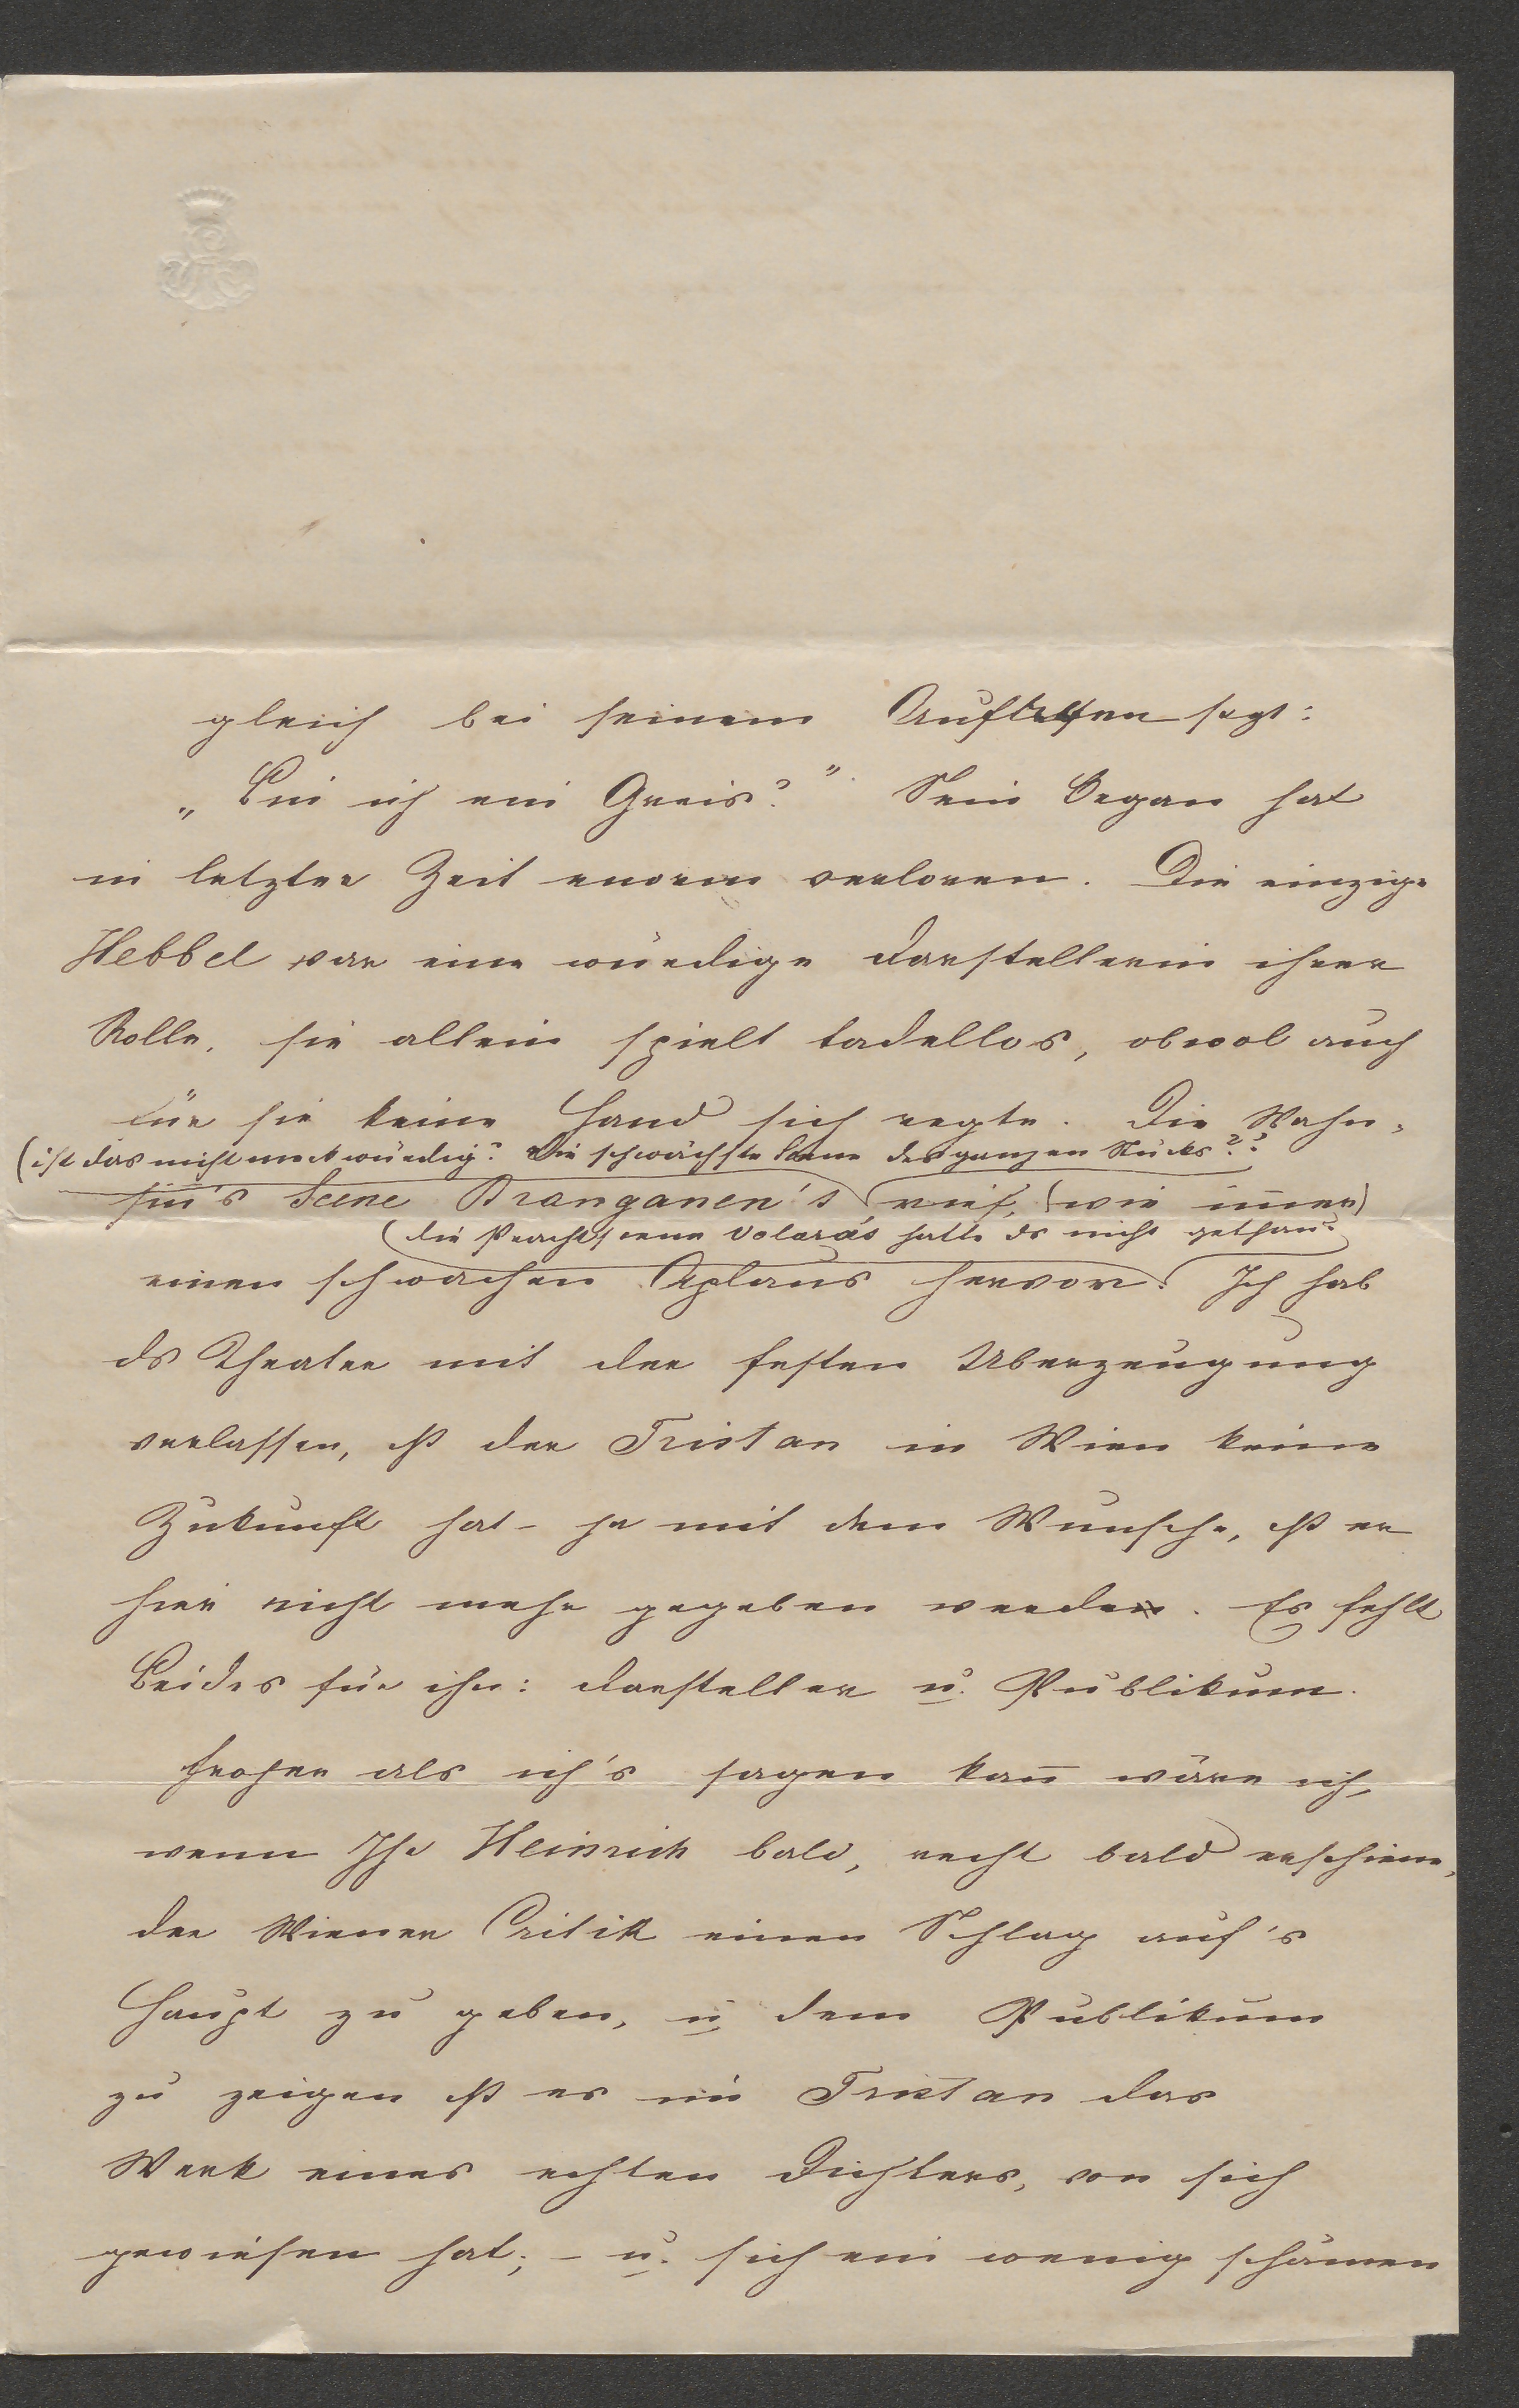 gleich bei seinem Auftretten sagt:
„Bin ich ein Greis?" Sein Organ hat
in letzter Zeit enorm verloren. Die einzige
Hebbel war eine würdige Darstellerin ihrer
Rolle, sie allein spielt tadellos, obwol auch
für sie keine Hand sich regte. Die Wahn-
(ist das nicht merkwürdig? Die schwächste Scene des ganzen Stücks??
sin̄'s Scene Branganen's rief, (wie im̄er)
(die Prachtscene Volara's hatte ds nicht gethan
einen schwachen Aplaus hervor. Ich hab
ds Theater mit der festen Uberzeugung
verlassen, dß der Tristan in Wien keine
Zukunft hat – ja mit dem Wunsche, dß er
hier nicht mehr gegeben werde. Es fehlt
Beides für ihn: Darsteller u. Publikum.
Froher als ich's sagen kan̄ wäre ich,
wenn Ihr Heinrich bald, recht bald erschiene,
der Wiener Critik einen Schlag auf's
Haupt zu geben, u. dem Publikum
zu zeigen dß es im Tristan das
Werk eines echten Dichters, von sich
gewiesen hat; – u. sich ein wenig schämen